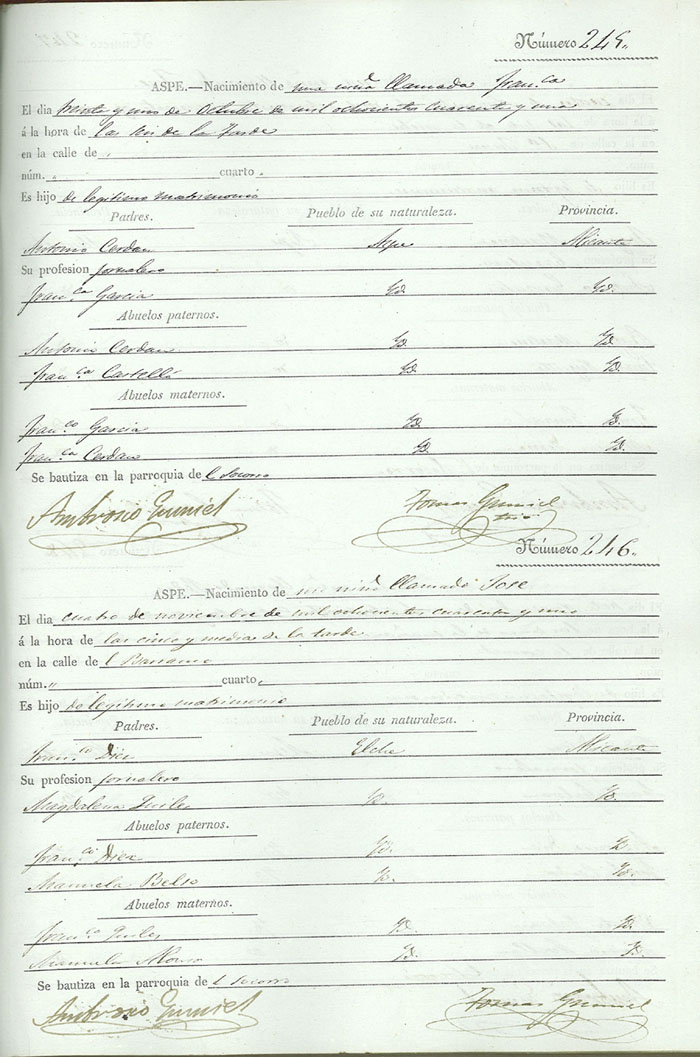 Número 245.
ASPE.—Nacimiento de una niña llamada Fran.ca
El dia treinta y uno de Octubre de mil ochocientos cuarenta y uno
á la hora de las seis de la tarde
en la calle de
núm. cuarto
Es hijo de legitimo matrimonio
Padres. Pueblo de su naturaleza. Provincia.
Antonio Cerdan Aspe Alicante
Su profesion jornalero
Fran.ca Garcia Yd. Yd.
Abuelos paternos.
Antonio Cerdan Yd. Yd.
Fran.ca Castelló Yd. Yd.
Abuelos maternos.
Fran.co Garcia Yd. Yd.
Fran.ca Cerdan Yd. Yd.
Se bautiza en la parroquia de l Socorro
Ambrosio Tomas
Número 246.
ASPE.—Nacimiento de un niño llamado Jose
El dia cuatro de noviembre de mil ochocientos cuarenta y uno
á la hora de las cinco y media de la tarde
en la calle de l Barranco
núm. " cuarto
Es hijo de legitimo matrimonio
Padres. Pueblo de su naturaleza. Provincia.
Fran.co Diez Elche Alicante
Su profesion jornalero
Magdalena Quiles Yd. Yd.
Abuelos paternos.
Fran.co Diez Yd. Yd.
Manuela Belso Yd. Yd.
Abuelos maternos.
Fran.co Quiles Yd. Yd.
Manuela Alonso Yd. Yd.
Se bautiza en la parroquia de l Socorro
Ambrosio Tomas